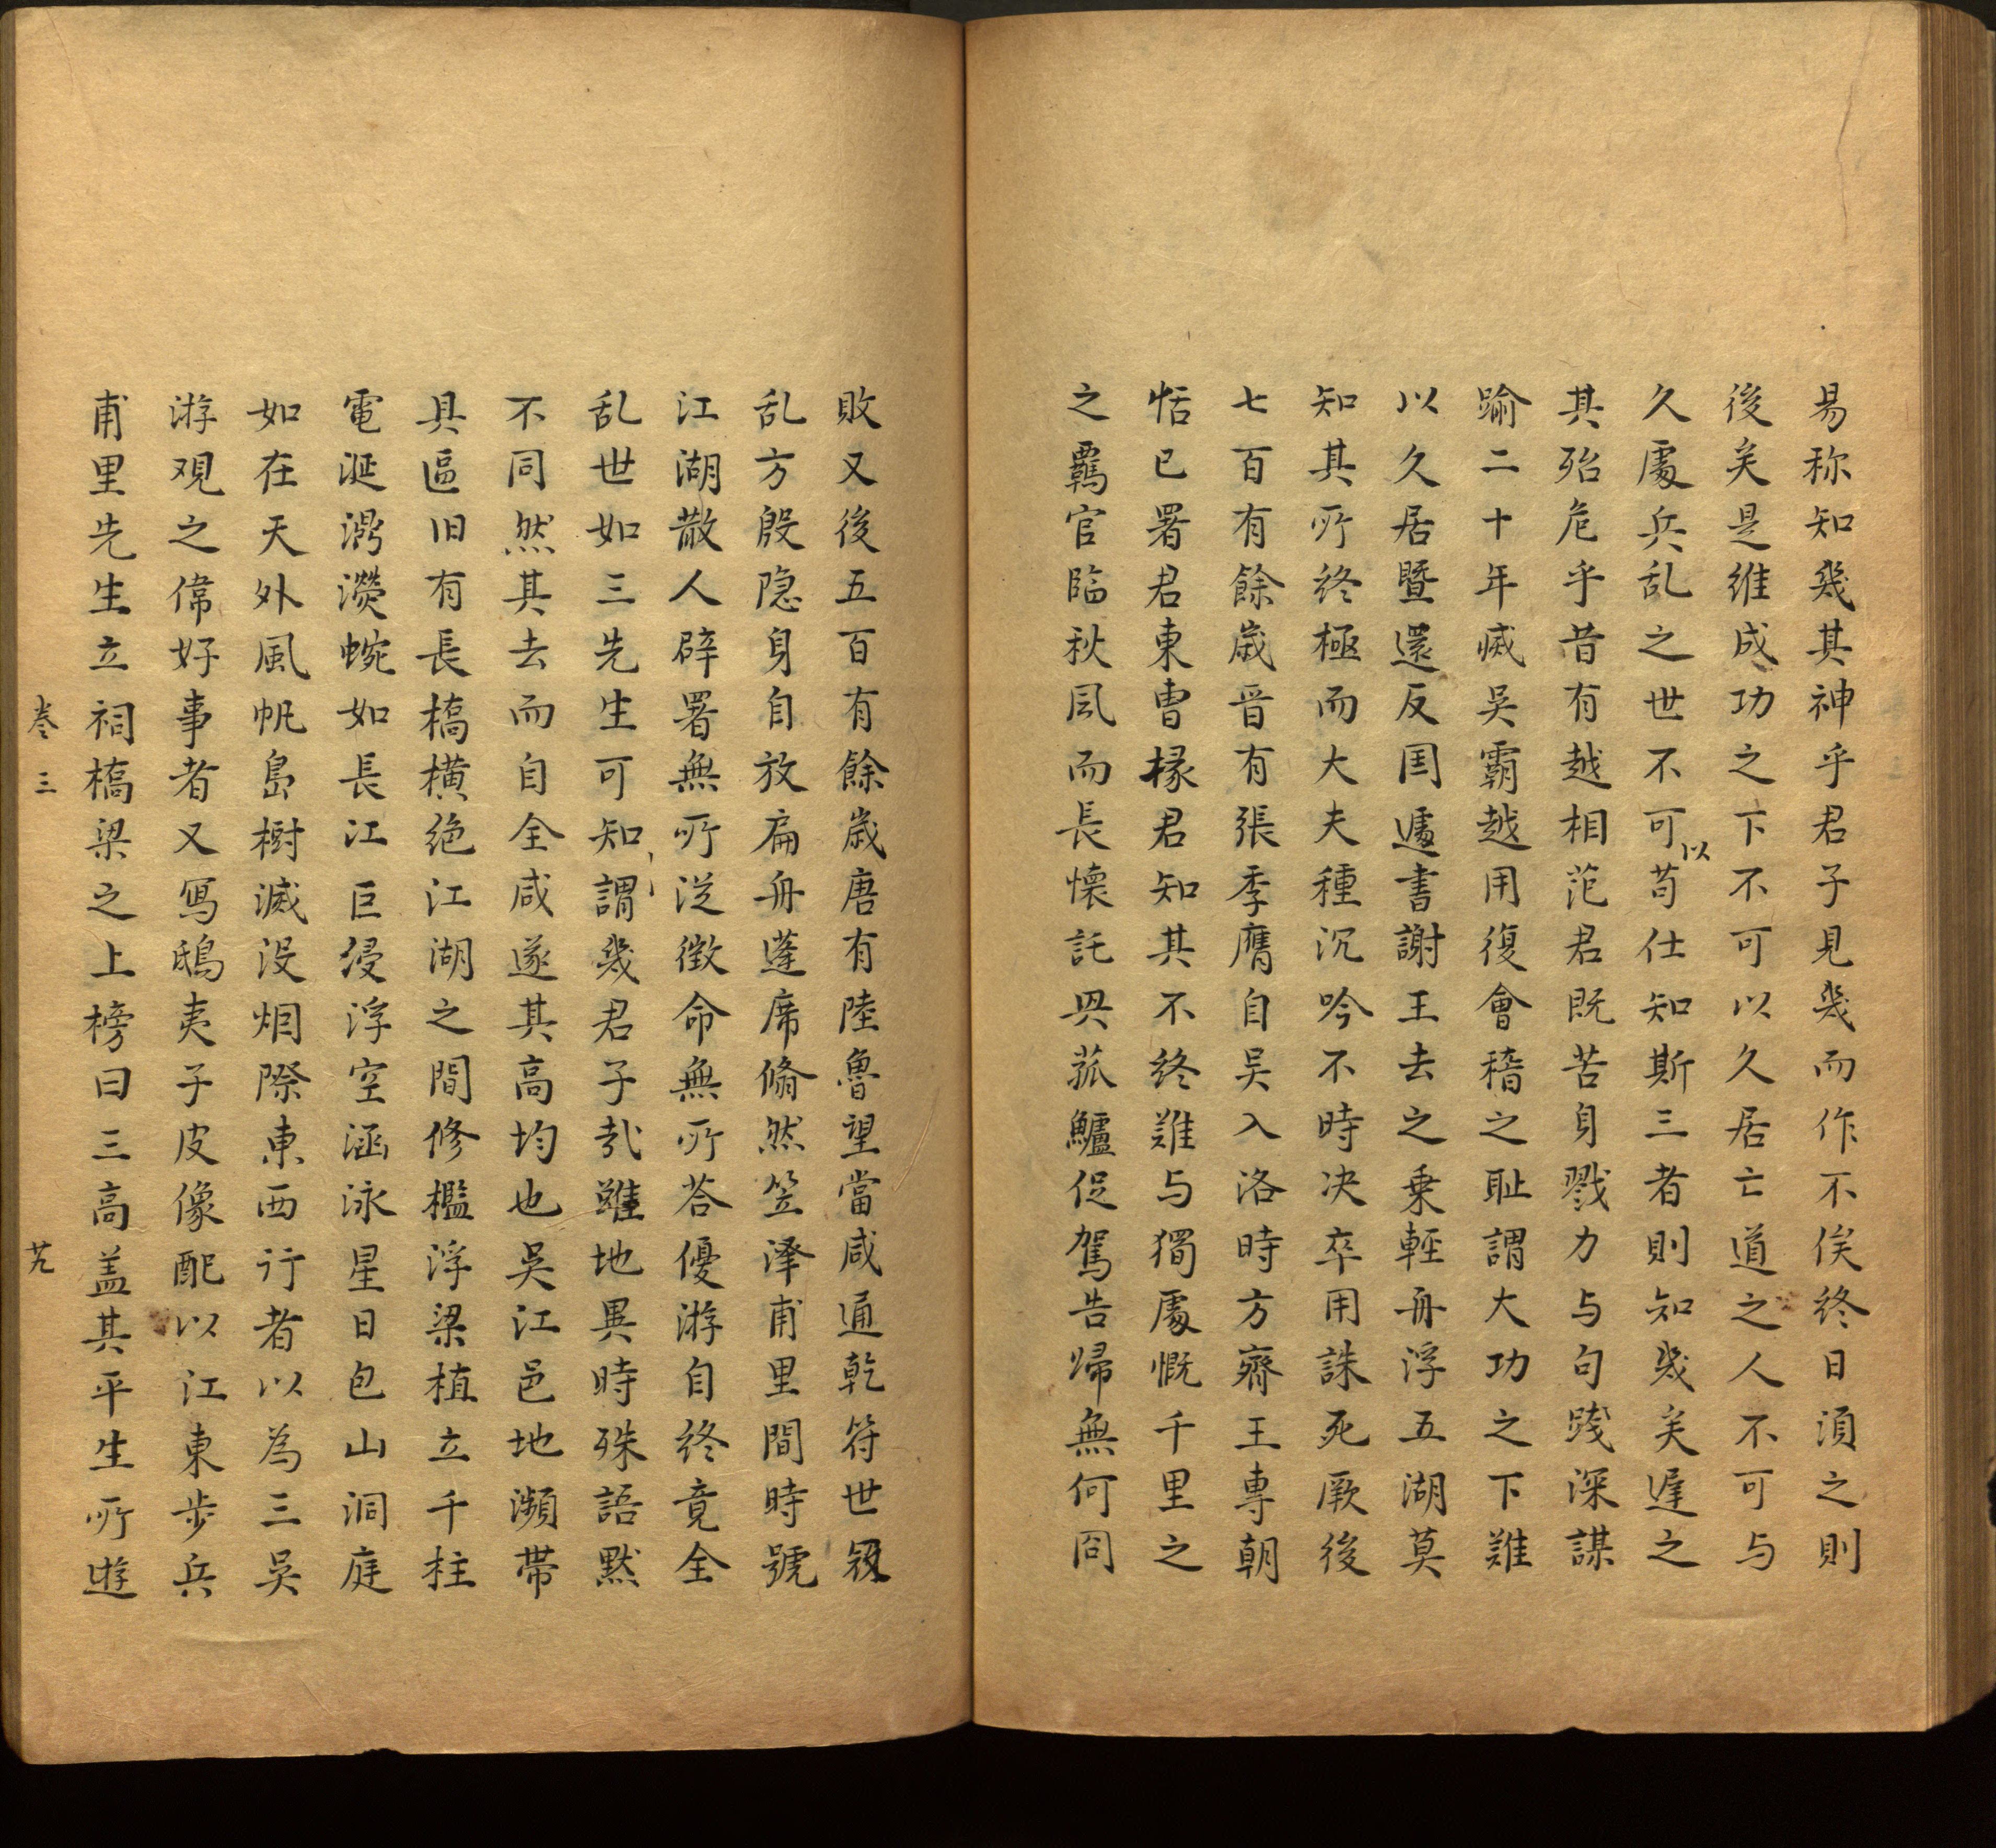 易称知幾其神乎君子見幾而作不俟終日須之則
後矣是維成功之下不可以久居亡道之人不可与
久處兵乱之世不可以苟仕知斯三者則知幾矣遅之
其殆危乎昔有越相范君既苦身戮力与句践深謀
踰二十年滅吳霸越用復會稽之耻謂大功之下難
以久居暨還反国遽書謝王去之乗輕舟浮五湖莫
知其所終極而大夫種沉吟不時决卒用誅死厥後
七百有餘歲晋有張季膺自吴入洛時方齊王專朝
恬已署君東曹掾君知其不終難与獨處慨千里之
之羈官臨秋風而長懷託興菰鱸促駕告帰無何冏
敗又後五百有餘歲唐有陸魯望當咸通乾符世

乱方殷隐身自放扁舟蓬席翛然笠澤甫里間時號
江湖散人辟署無所從徴命無所荅優游自終竟全
乱世如三先生可知謂幾君子㢤雖地異時殊語黙
不同然其去而自全咸遂其高均也吴江邑地瀕帯
具區旧有長橋横絶江湖之間修檻浮梁植立千柱
電涎灂灒蜿如長江巨侵浮空涵泳星日包山洞庭
如在天外風帆島樹滅没烟際東西行者以為三吴
游观之偉好事者又冩鴟夷子皮像配以江東步兵
甫里先生立祠橋梁之上榜曰三高盖其平生所遊
卷三 艽